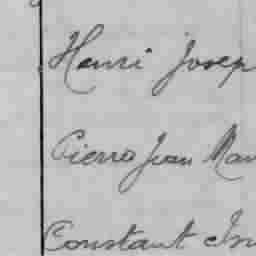 Henri Josep
Pierre Jean Mar
Constant